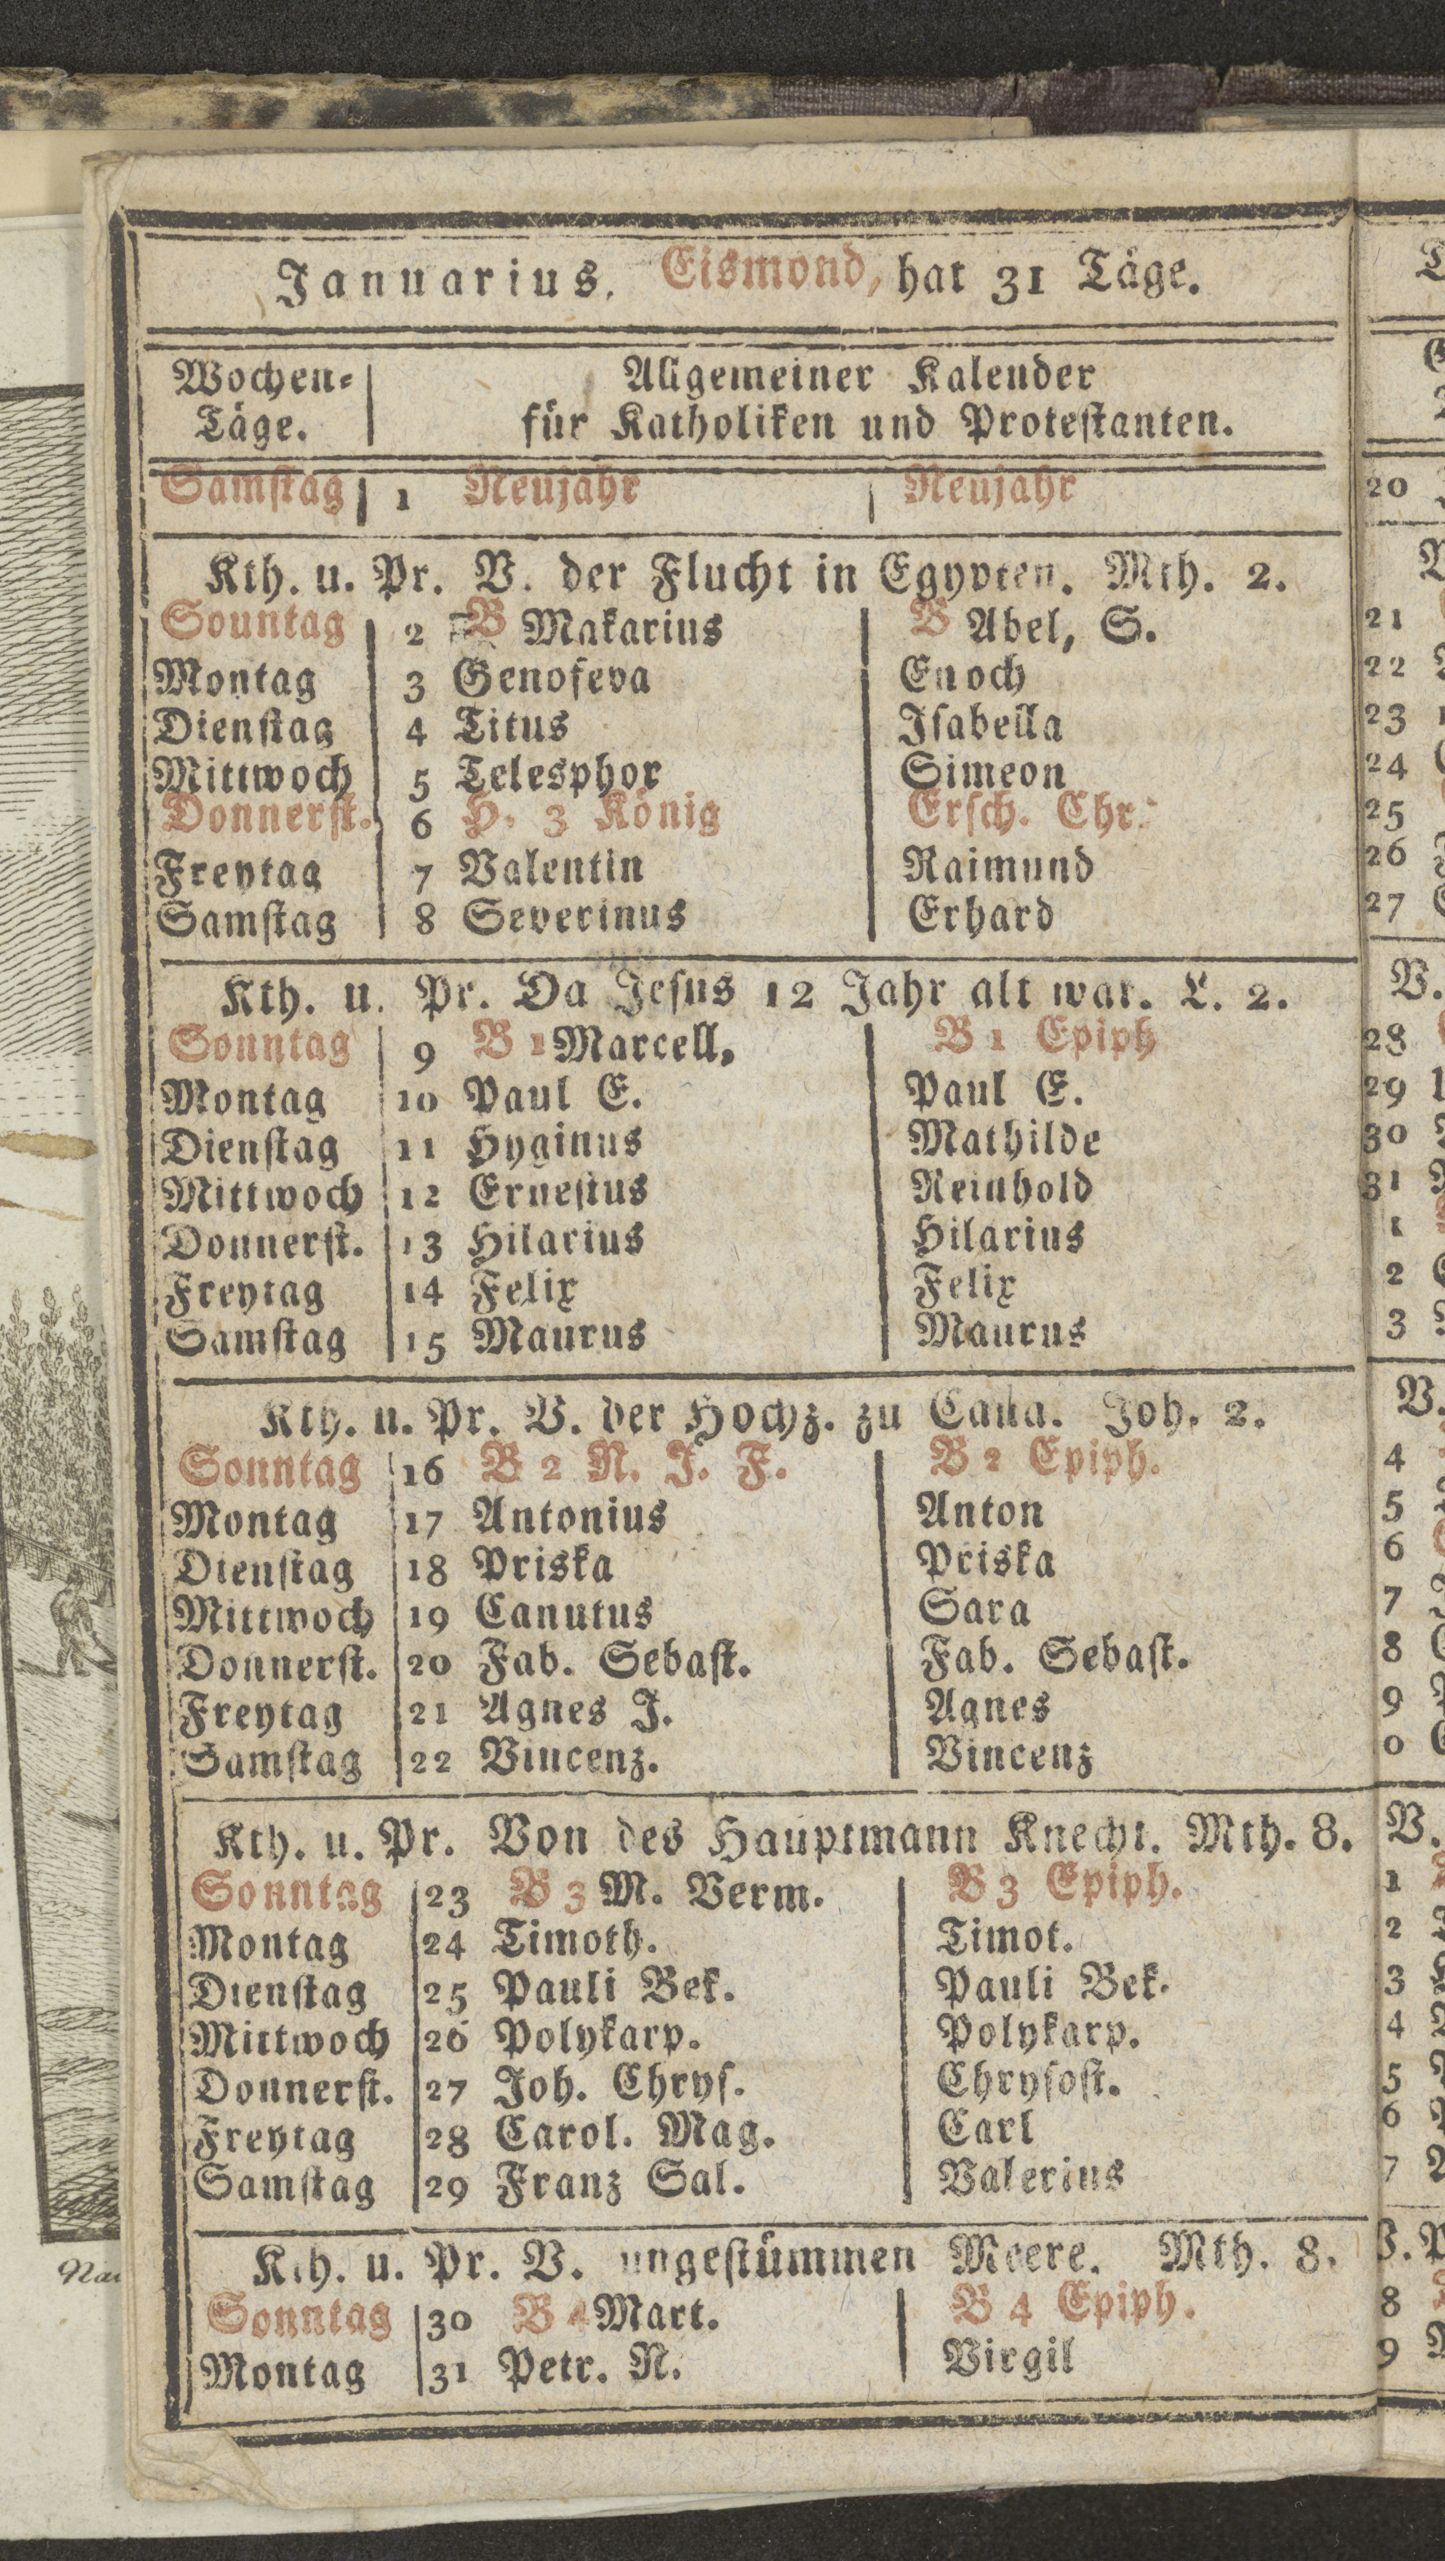 Januarius, Eismond, hat 31 Täge.
Wochen= Allgemeiner Kalender
Täge. für Katholiken und Protestanten.
Samstag 1 Neujahr Neujahr
Kth. u. Pr. V. der Flucht in Egypten. Mth. 2.
Sonntag 2 B Makarius B Abel, S.
Montag 3 Genofeva Enoch
Dienstag 4 Titus Isabella
Mittwoch 5 Telesphor Simeon
Donnerst. 6 H. 3 König Ersch. Chr.
Freytag 7 Valentin Raimund
Samstag 8 Severinus Erhard
Kth. u. Pr. Da Jesus 12 Jahr alt war. L. 2.
Sonntag 9 B 1 Marcell, B 1 Epiph
Montag 10 Paul E. Paul E.
Dienstag 11 Hyginus Mathilde
Mittwoch 12 Ernestus Reinhold
Donnerst. 13 Hilarius Hilarius
Freytag 14 Felix Felix
Samstag 15 Maurus Maurus
Kth. u. Pr. V. der Hochz. zu Cana. Joh. 2.
Sonntag 16 B 2 N. J. F. B 2 Epiph.
Montag 17 Antonius Anton
Dienstag 18 Priska Priska
Mittwoch 19 Canutus Sara
Donnerst. 20 Fab. Sebast. Fab. Sebast.
Freytag 21 Agnes J. Agnes
Samstag 22 Vincenz. Vincenz
Kth. u. Pr. Von des Hauptmann Knecht. Mth. 8.
Sonntag 23 B 3 M. Verm. B 3 Epiph.
Montag 24 Timoth. Timot.
Dienstag 25 Pauli Bek. Pauli Bek.
Mittwoch 26 Polykarp. Polykarp.
Donnerst. 27 Joh. Chrys. Chrysost.
Freytag 28 Carol. Mag. Carl
Samstag 29 Franz Sal. Valerius
Kth. u. Pr. V. ungestümmen Meere. Mth. 8.
Sonntag 30 B 4 Mart. B 4 Epiph.
Montag 31 Petr. N. Virgil
20
21
22
23
24
25
26
27
V.
28
29
30
31
1
2
3
V.
4
5
6
7
8
9
0
V.
1
2
3
4
5
6
7
8
9